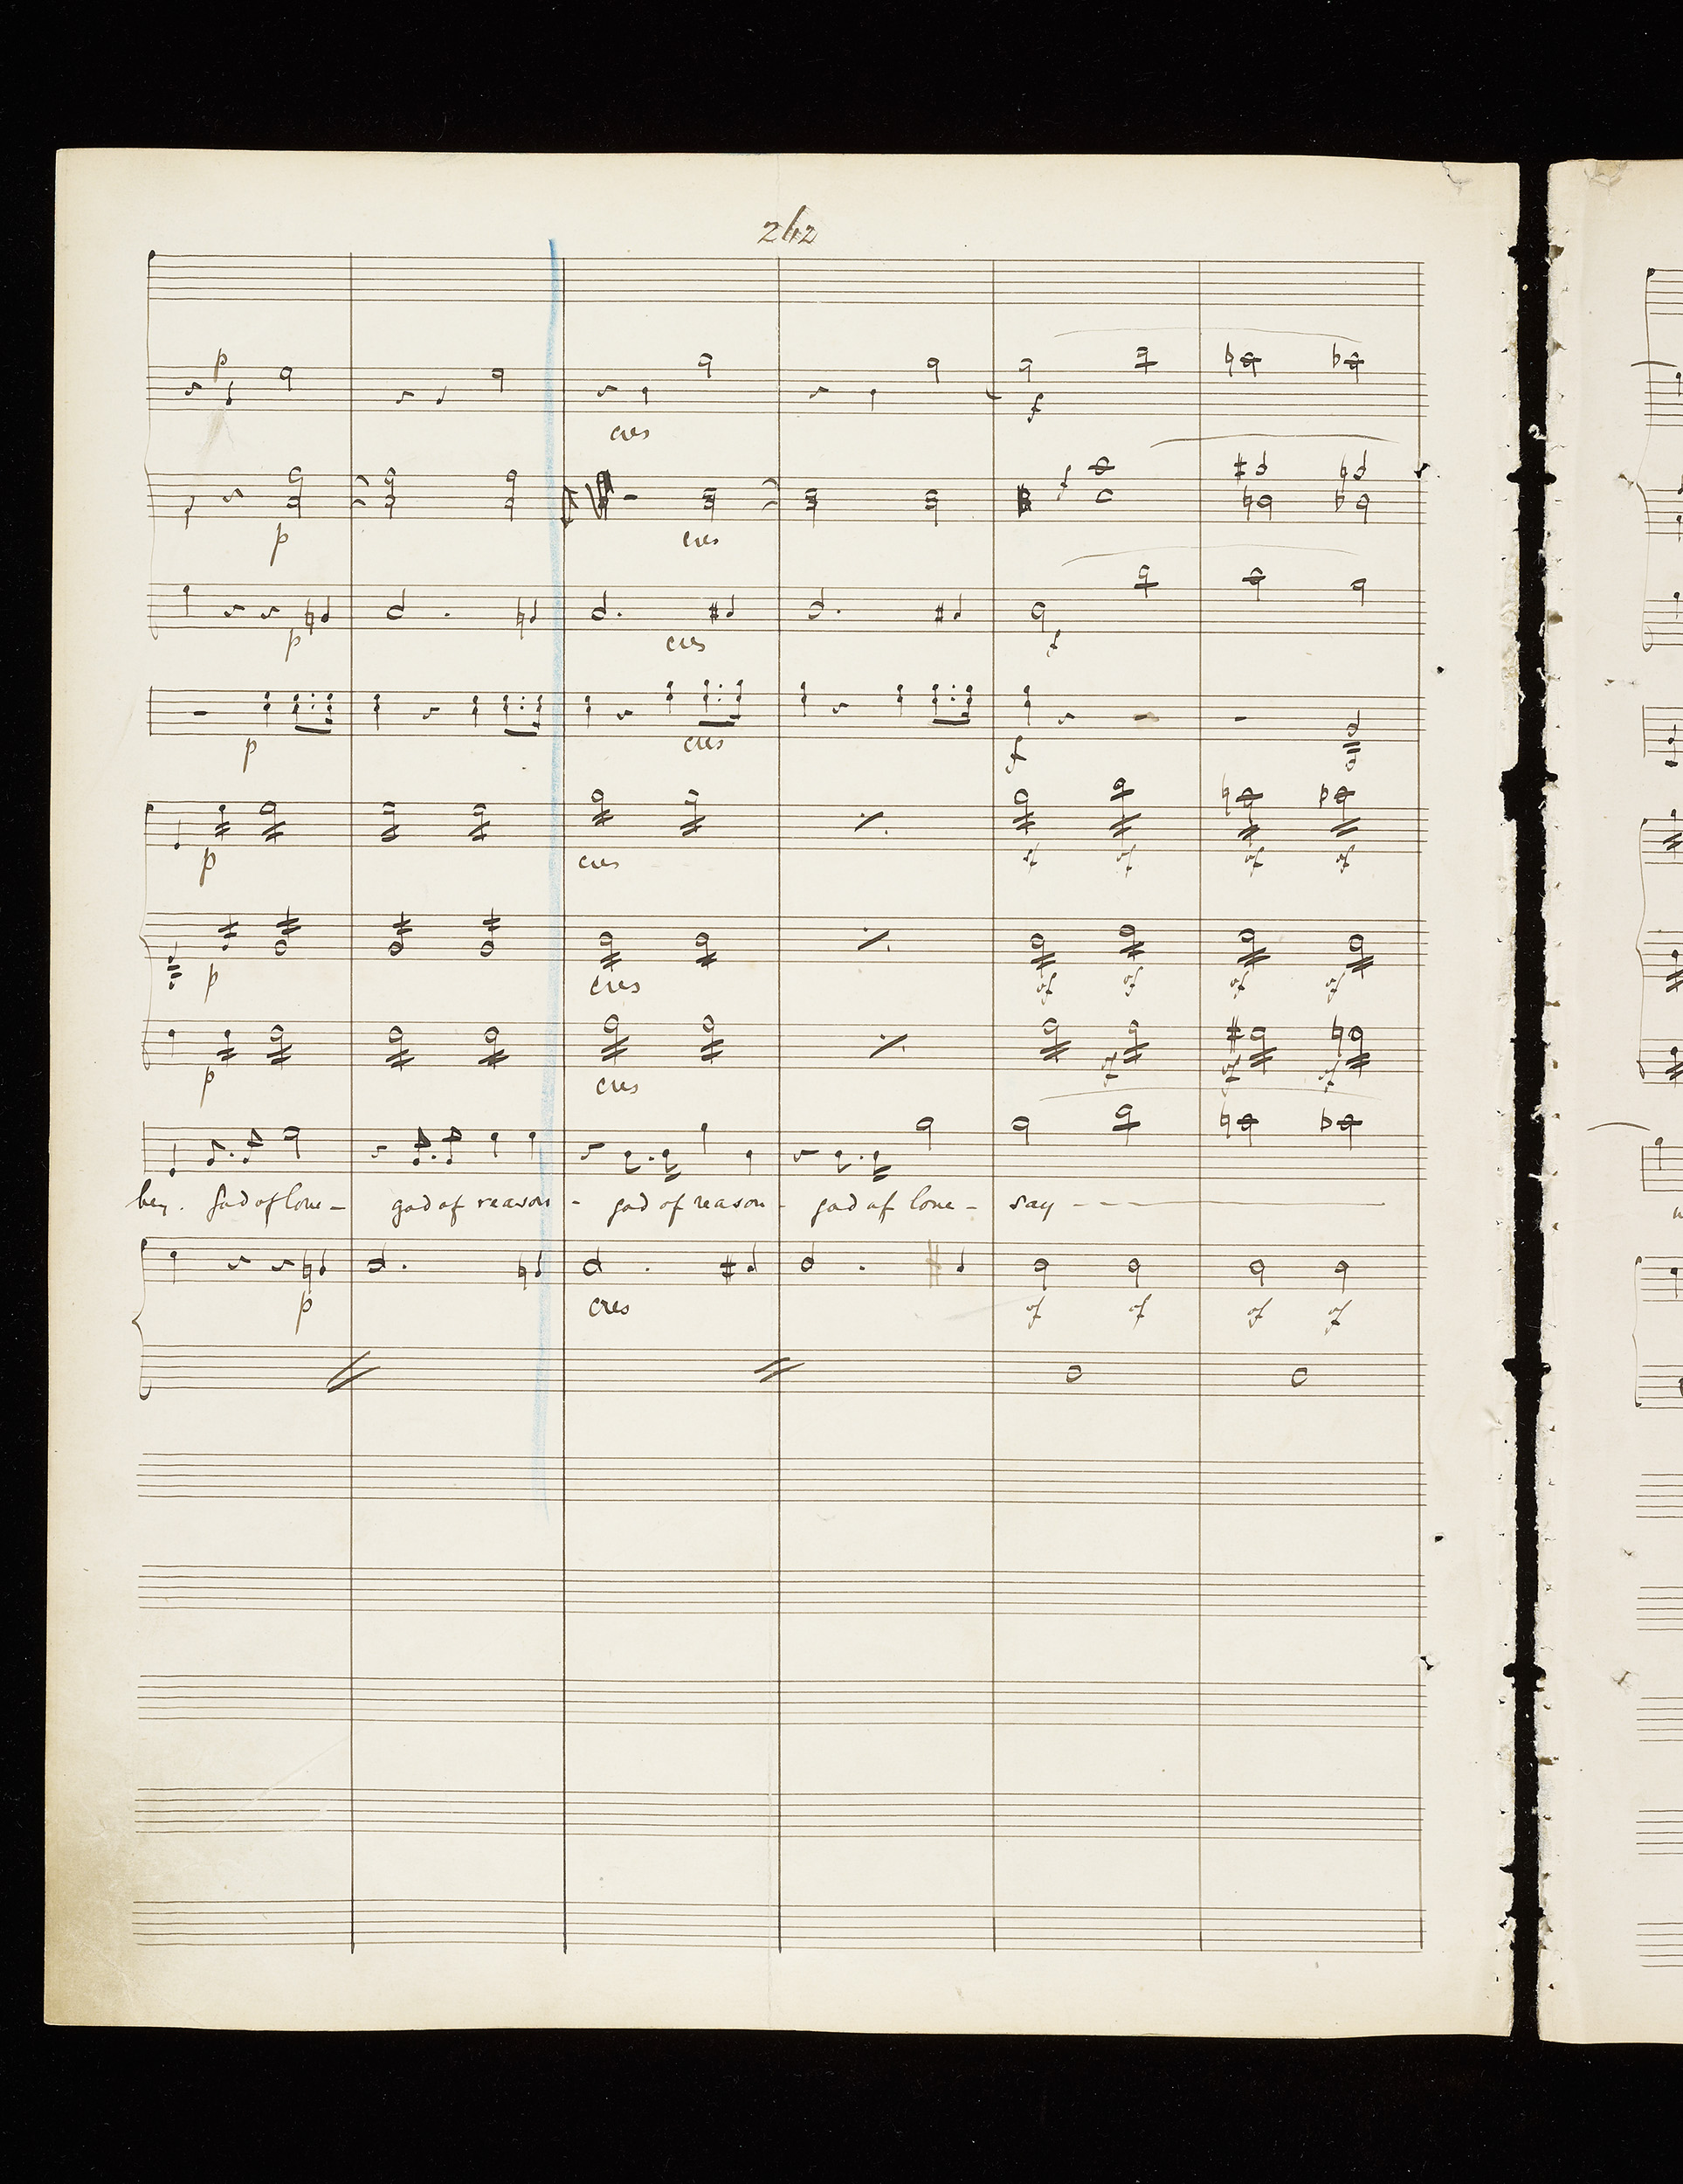 262
p
cres
f
f
p
cres
p
cres
f
p
cres
f
p
cres
sf sf sf sf
p
cres
sf sf sf sf
p
cres
sf sf sf
god of love - god of reason - god of reason - god of love - say
p
cres
sf sf sf sf